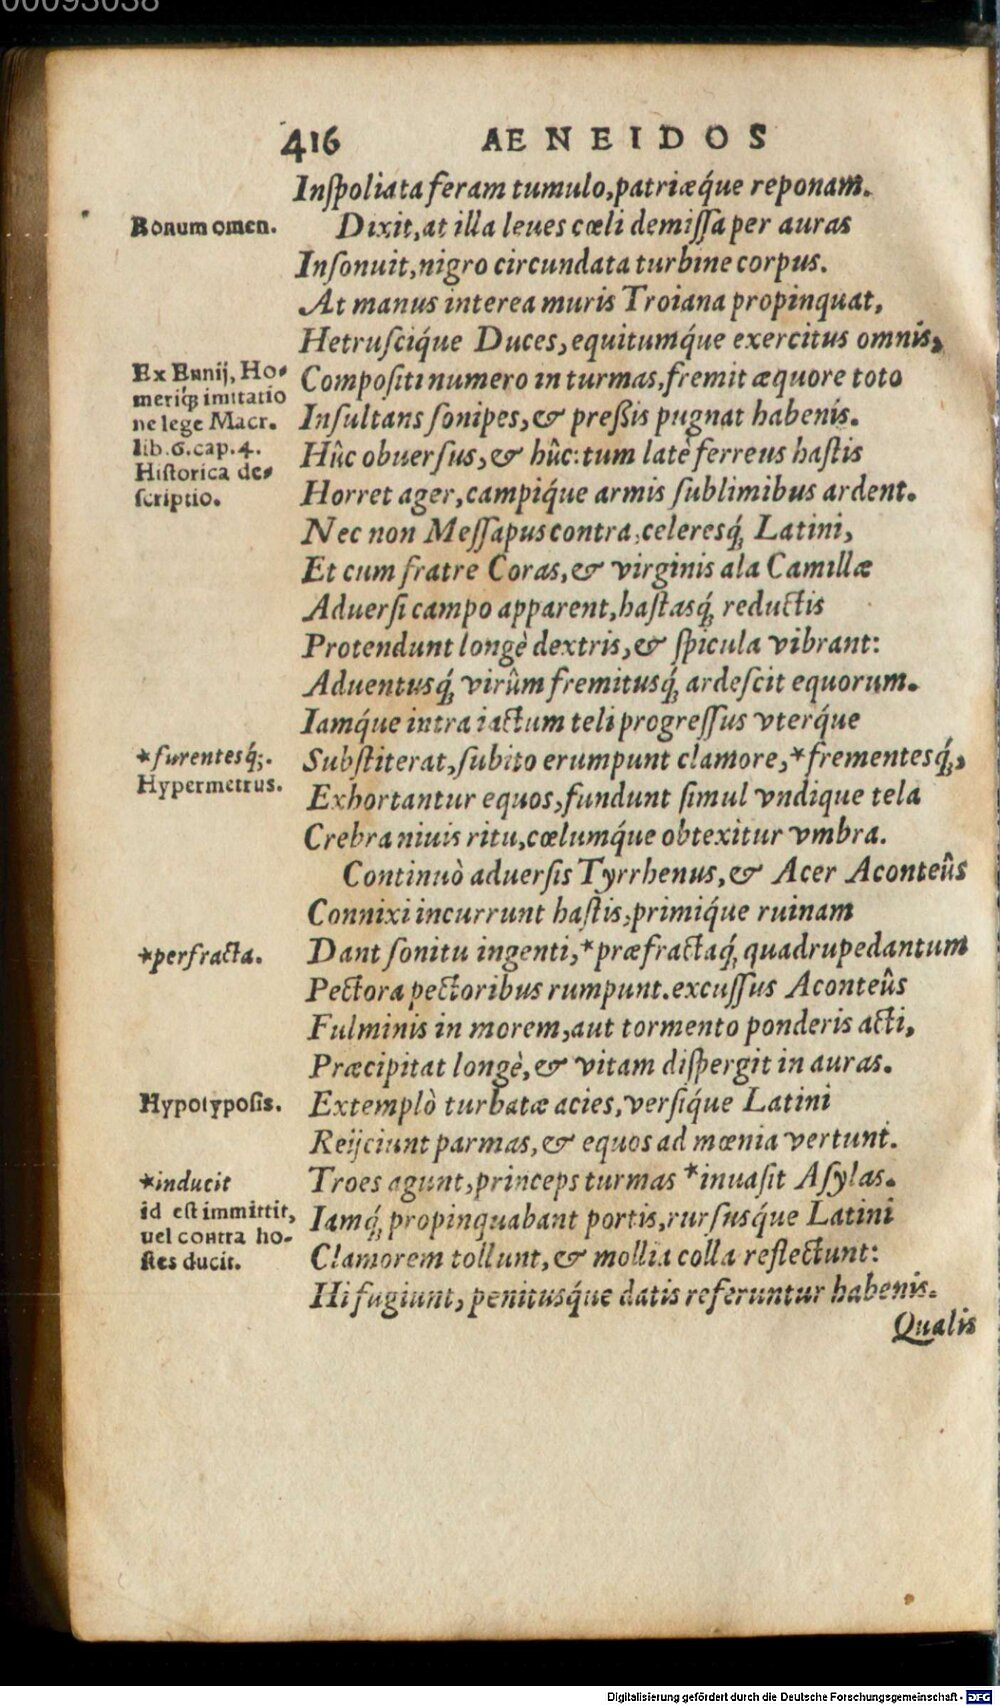 00093038
416 AENEIDOS
Inſpoliata feram tumulo, patriæq́ue reponam.
Bonum omen.
Dixit, at illa leues cœli demiſſa per auras
Inſonuit, nigro circundata turbine corpus.
At manus interea muris Troiana propinquat,
Hetruſciq́ue Duces, equitumq́ue exercitus omnis,
Ex Ennij, Ho-
meriq́; imitatio
ne lege Macr.
lib.6.cap.4.
Hiſtorica de-
ſcriptio.
Compoſiti numero in turmas, fremit æquore toto
Inſultans ſonipes, & preßis pugnat habenis.
Hûc obuerſus, & hûc: tum latè ferreus haſtis
Horret ager, campiq́ue armis ſublimibus ardent.
Nec non Meſſapus contra, celeresq́; Latini,
Et cum fratre Coras, & virginis ala Camillæ
Aduerſi campo apparent, haſtasq́; reductis
Protendunt longè dextris, & ſpicula vibrant:
Aduentusq́; virûm fremitusq́; ardeſcit equorum.
Iamq́ue intra iactum teli progreſſus vterq́ue
*furentesq́;.
Hypermetrus.
Subſtiterat, ſubito erumpunt clamore, *frementesq́;,
Exhortantur equos, fundunt ſimul vndique tela
Crebra niuis ritu, cœlumq́ue obtexitur vmbra.
Continuò aduerſis Tyrrhenus, & Acer Aconteûs
Connixi incurrunt haſtis, primiq́ue ruinam
*perfracta.
Dant ſonitu ingenti, *præfractaq́; quadrupedantum
Pectora pectoribus rumpunt. excuſſus Aconteûs
Fulminis in morem, aut tormento ponderis acti,
Præcipitat longè, & vitam diſpergit in auras.
Hypotypoſis.
Extemplò turbatæ acies, verſiq́ue Latini
Reijciunt parmas, & equos ad mœnia vertunt.
*inducit
id eſt immittit,
uel contra ho-
ſtes ducit.
Troes agunt, princeps turmas *inuaſit Aſylas.
Iamq́; propinquabant portis, rurſusq́ue Latini
Clamorem tollunt, & mollia colla reflectunt:
Hi fugiunt, penitusq́ue datis referuntur habenis.
Qualis
Digitalisierung gefördert durch die Deutsche Forschungsgemeinschaft - DFG